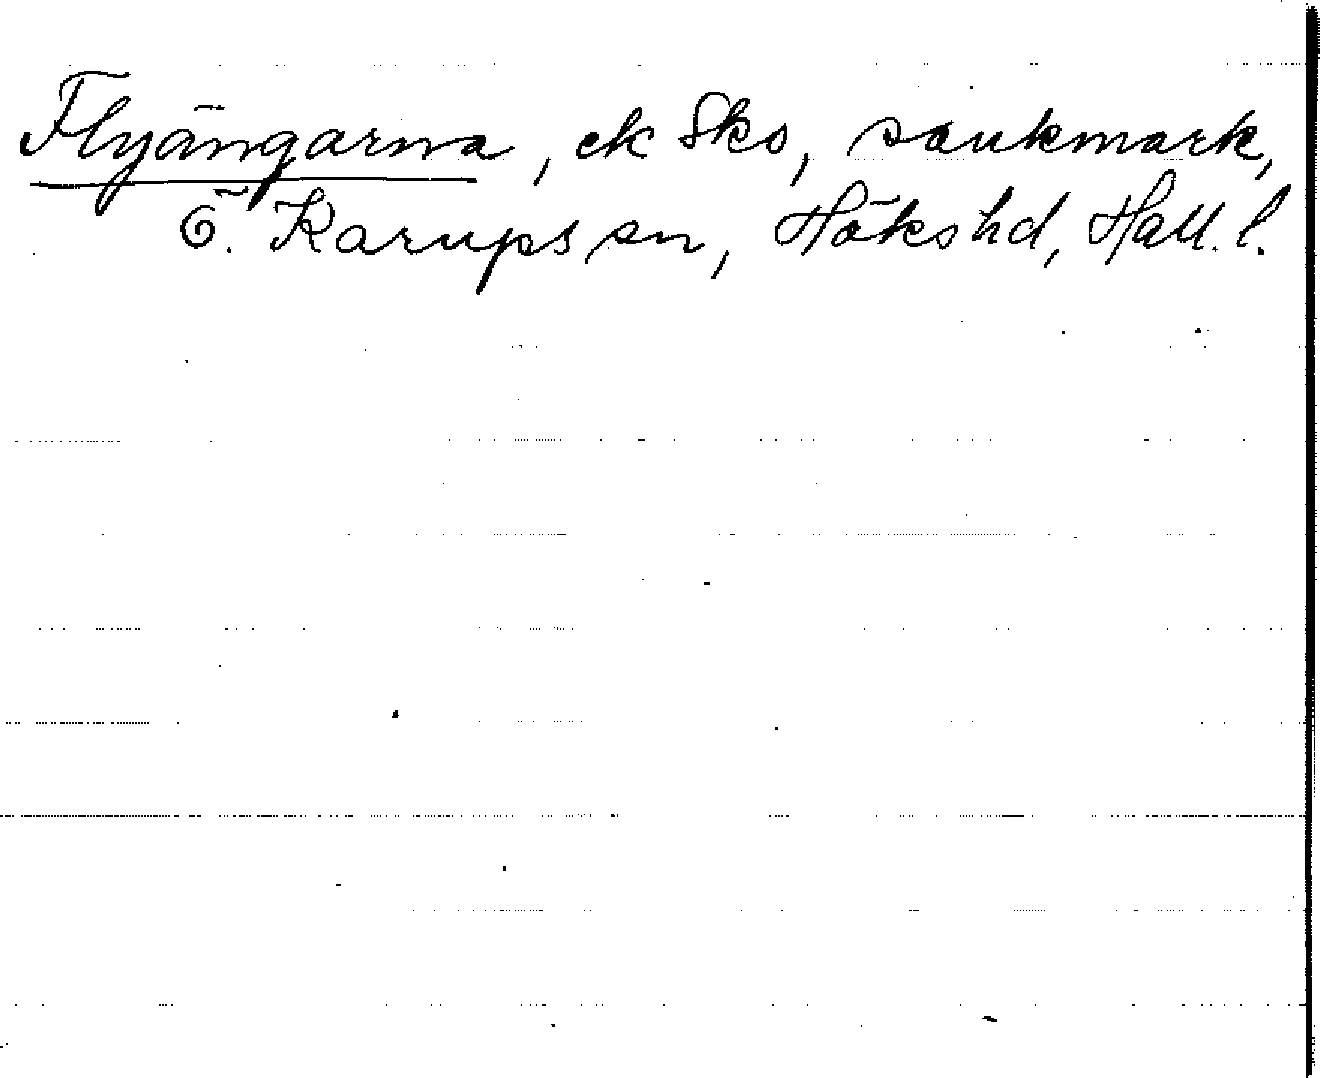 Flyängarna, ek Sko, sankmark,
Ö. Karups sn, Hökshd, Hall. l.